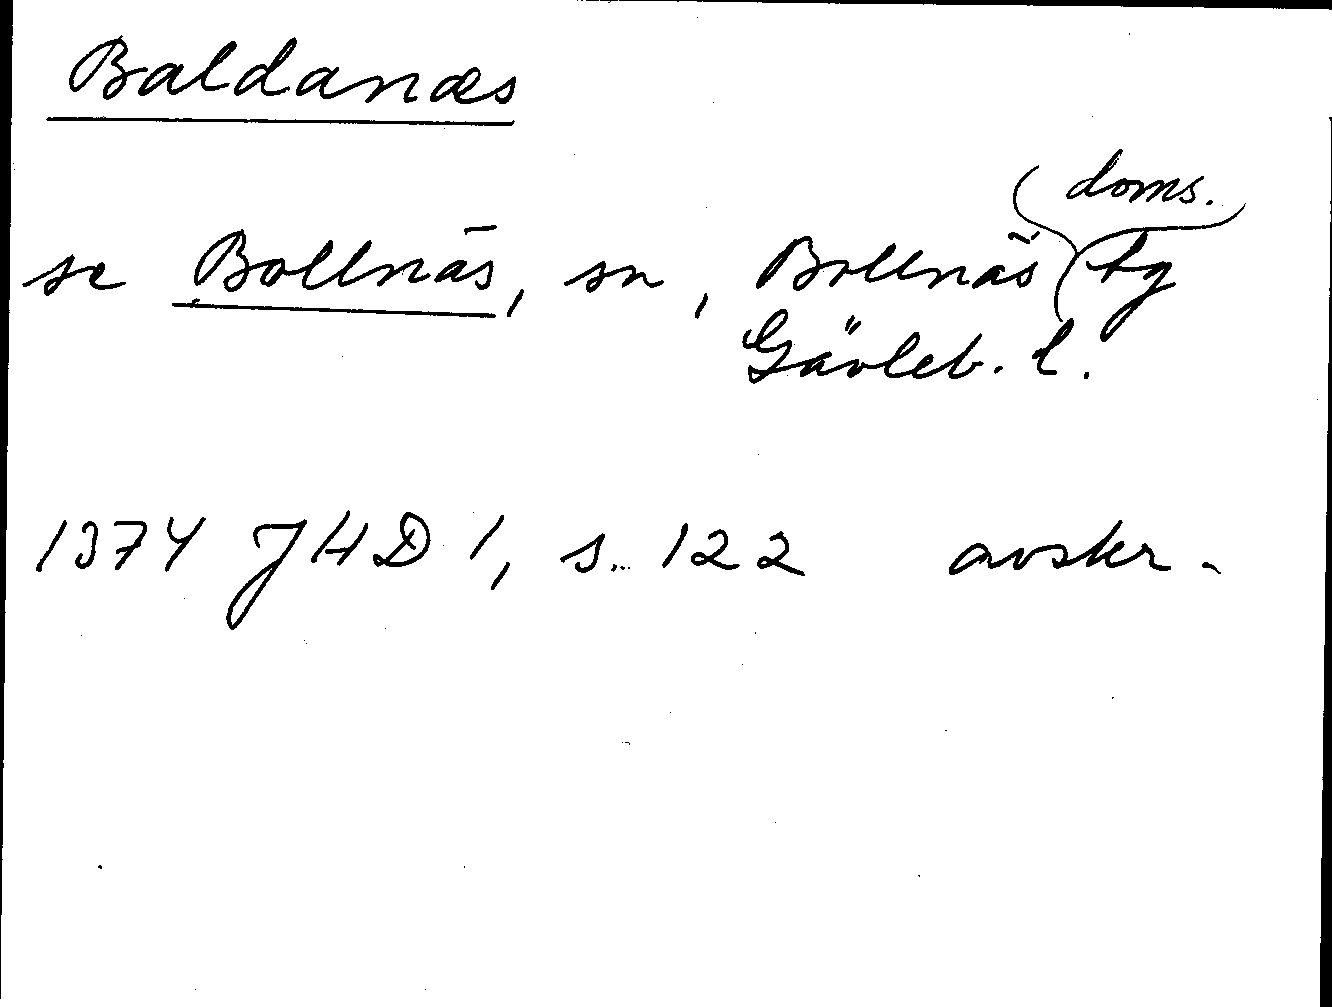 Baldanæs
se Bollnäs, sn, Bollnäs doms. tg
Gävleb. l.
1374 JHD 1, s. 122 avskr.